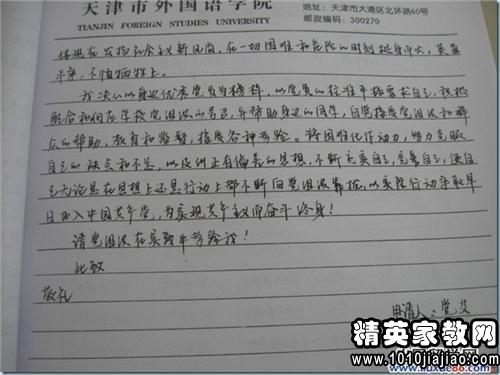 天津市外国语学院
TIANJIN FOREIGN STUDIES UNIVERSITY
地址：天津市大港区北环路60号
邮政编码：300270
体现在发扬社会主义新风尚，在一切困难和危险的时刻挺身而出，英勇
斗争，不怕牺牲上。
我决心以身边优秀党员为榜样，以党员的标准严格要求自己，积极
配合和
学校党组织的
并帮助身边的同学，自觉接受党组织和群
众的帮助、教育和监督，接受各种考验。将困难化作动力，努力克服
自己的缺点和不足，以及纠正有偏差的思想，不断充实自己，完善自己，使自
己无论是在思想上还是行动上都不断向党组织靠拢，以实际行动争取早
日加入中国共产党，为实现共产主义而奋斗终身！
请党组织在实践中考验我！
此致
敬礼
申请人：党
精英家教网
www.1010jiajiao.com